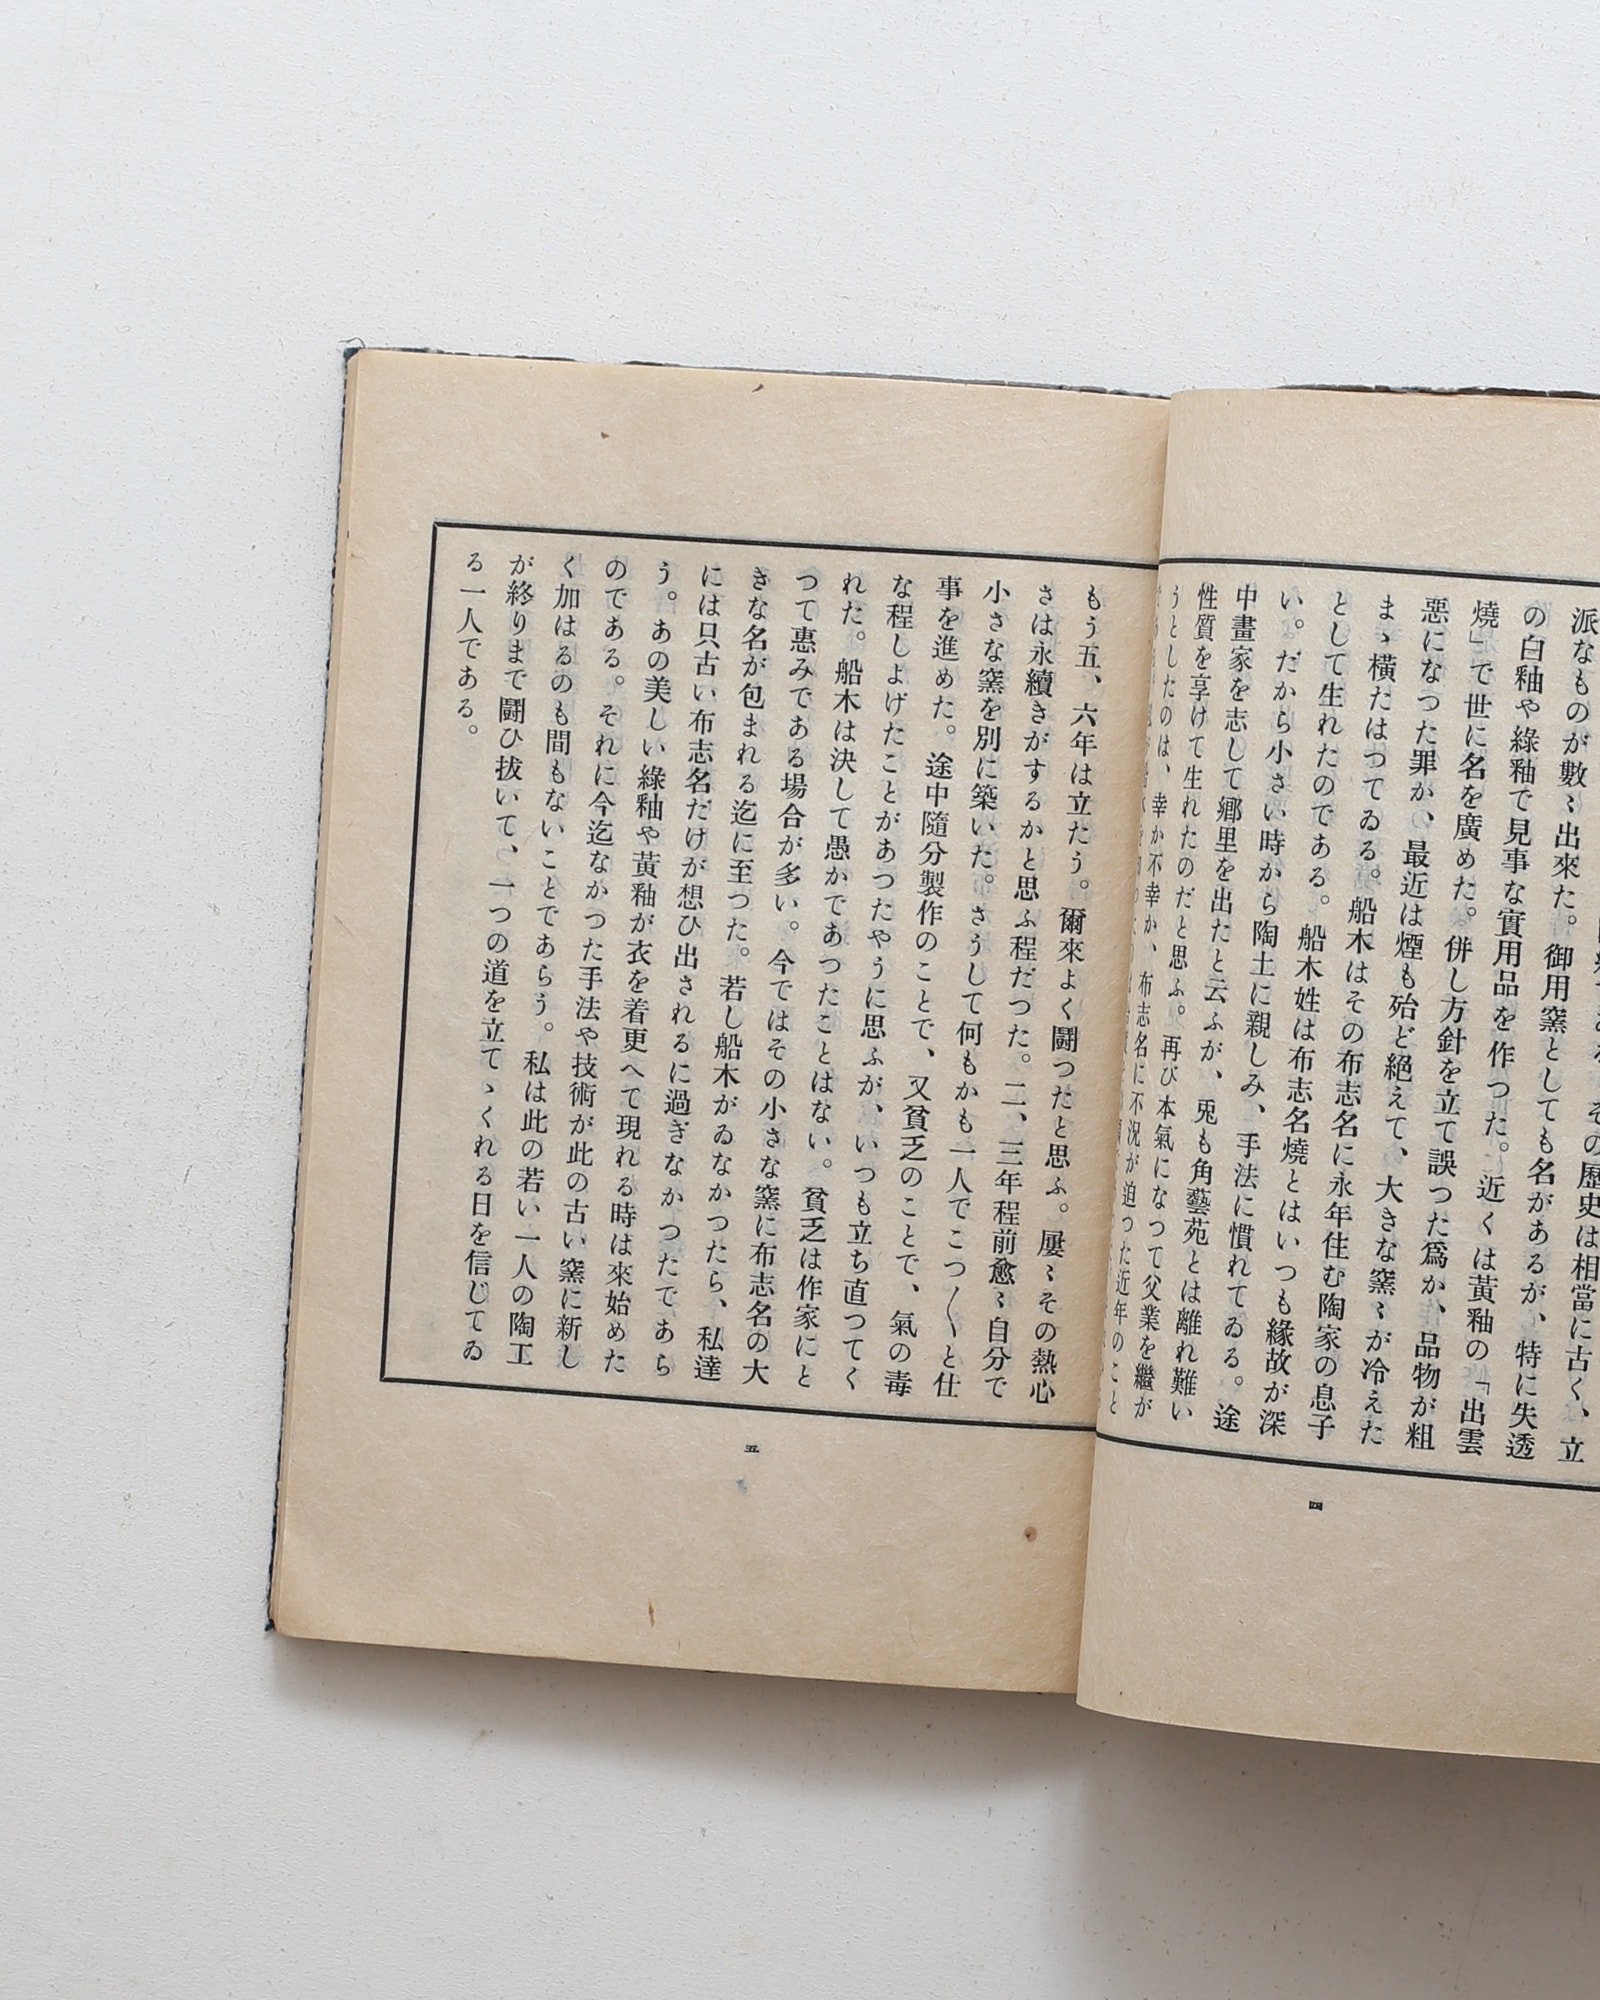 派なものが數〻出來た。御用窯としても名があるが、特に失透
の白釉や綠釉で見事な實用品を作つた。近くは黃釉の「出雲
燒」で世に名を廣めた。併し方針を立て誤つた爲か、品物が粗
惡になつた罪か、最近は煙も殆ど絕えて、大きな窯〻が冷えた
まゝ橫たはつてゐる。船木はその布志名に永年住む陶家の息子
として生れたのである。船木姓は布志名燒とはいつも緣故が深
い。だから小さい時から陶土に親しみ、手法に慣れてゐる。途
中畫家を志して鄕里を出たと云ふが、兎も角藝苑とは離れ難い
性質を享けて生れたのだと思ふ。再び本氣になつて父業を繼が
うとしたのは、幸か不幸か、布志名に不況が迫つた近年のこと
四
もう五、六年は立たう。爾來よく鬪つたと思ふ。屢〻その熱心
さは永續きがするかと思ふ程だつた。二、三年程前愈〻自分で
小さな窯を別に築いた。さうして何もかも一人でこつ〳〵と仕
事を進めた。途中隨分製作のことで、又貧乏のことで、氣の毒
な程しよげたことがあつたやうに思ふが、いつも立ち直つてく
れた。船木は決して愚かであつたことはない。貧乏は作家にと
つて惠みである場合が多い。今ではその小さな窯に布志名の大
きな名が包まれる迄に至つた。若し船木がゐなかつたら、私達
には只古い布志名だけが想ひ出されるに過ぎなかつたであら
う。あの美しい綠釉や黃釉が衣を着更へて現れる時は來始めた
のである。それに今迄なかつた手法や技術が此の古い窯に新し
く加はるのも間もないことであらう。私は此の若い一人の陶工
が終りまで鬪ひ拔いて、一つの道を立てゝくれる日を信じてゐ
る一人である。
五